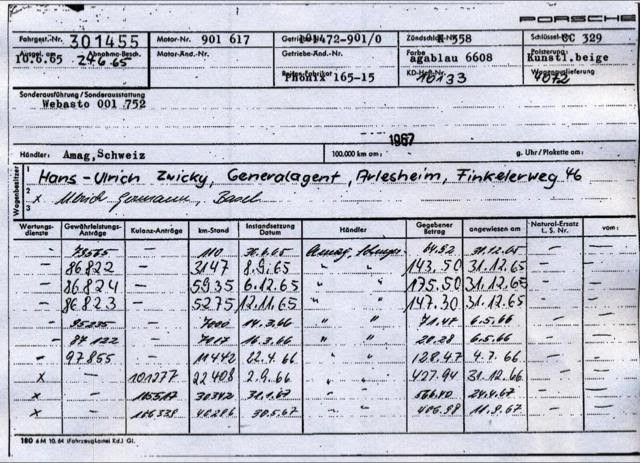 PORSCHE
Fahrgest.-Nr. 301455 Motor-Nr. 901 617 Getriebe-Nr. 101472-901/0 Zündschloß-Nr. K 558 Schlüssel-Nr. CC 329
Ausgel. am 10.6.65 Abnahme-Besch. 24.6.65 Motor-Änd.-Nr. Getriebe-Änd.-Nr. Farbe agablau 6608 Polsterung: Kunstl.beige
Reifen-Fabrikat Phönix 165-15 KD-Heft-Nr. 10133 Wagenauslieferung 4072
Sonderausführung / Sonderausstattung
Webasto 001 752
1967
Händler: Amag, Schweiz 100.000 km am: g. Uhr / Plakette am:
Wagenbesitzer
1 Hans-Ulrich Zwicky, Generalagent, Arlesheim, Finkelerweg 46
2 x Ulrich Germann, Basel
3
Wartungs-dienste Gewährleistungs-Anträge Kulanz-Anträge km-Stand Instandsetzung Datum Händler Gegebener Betrag angewiesen am Natural-Ersatz t. S. Nr. vom:
— 110 31.12.65
— 86822 — 3147 8.9.65 " " 143.50 31.12.65 — —
— 86824 — 5935 6.12.65 " " 175.50 31.12.65 — —
— 86823 — 5275 12.11.65 " " 147.30 31.12.65 — —
— 95235 — 7000 14.3.66 " " 71.47 6.5.66 — —
— 87122 — 7017 16.3.66 " " 20.28 6.5.66 — —
— 97855 — 11442 22.4.66 " " 128.47 4.7.66 — —
x — 101277 22408 2.9.66 " " 427.94 31.12.66 — —
x — 30342 31.1.67 " " 566.40 24.4.67 — —
x — 106538 40286 30.5.67 " " 406.98 11.9.67 — —
180 6 M 10. 64 (Fahrzeugkartei Kd.) Gl.